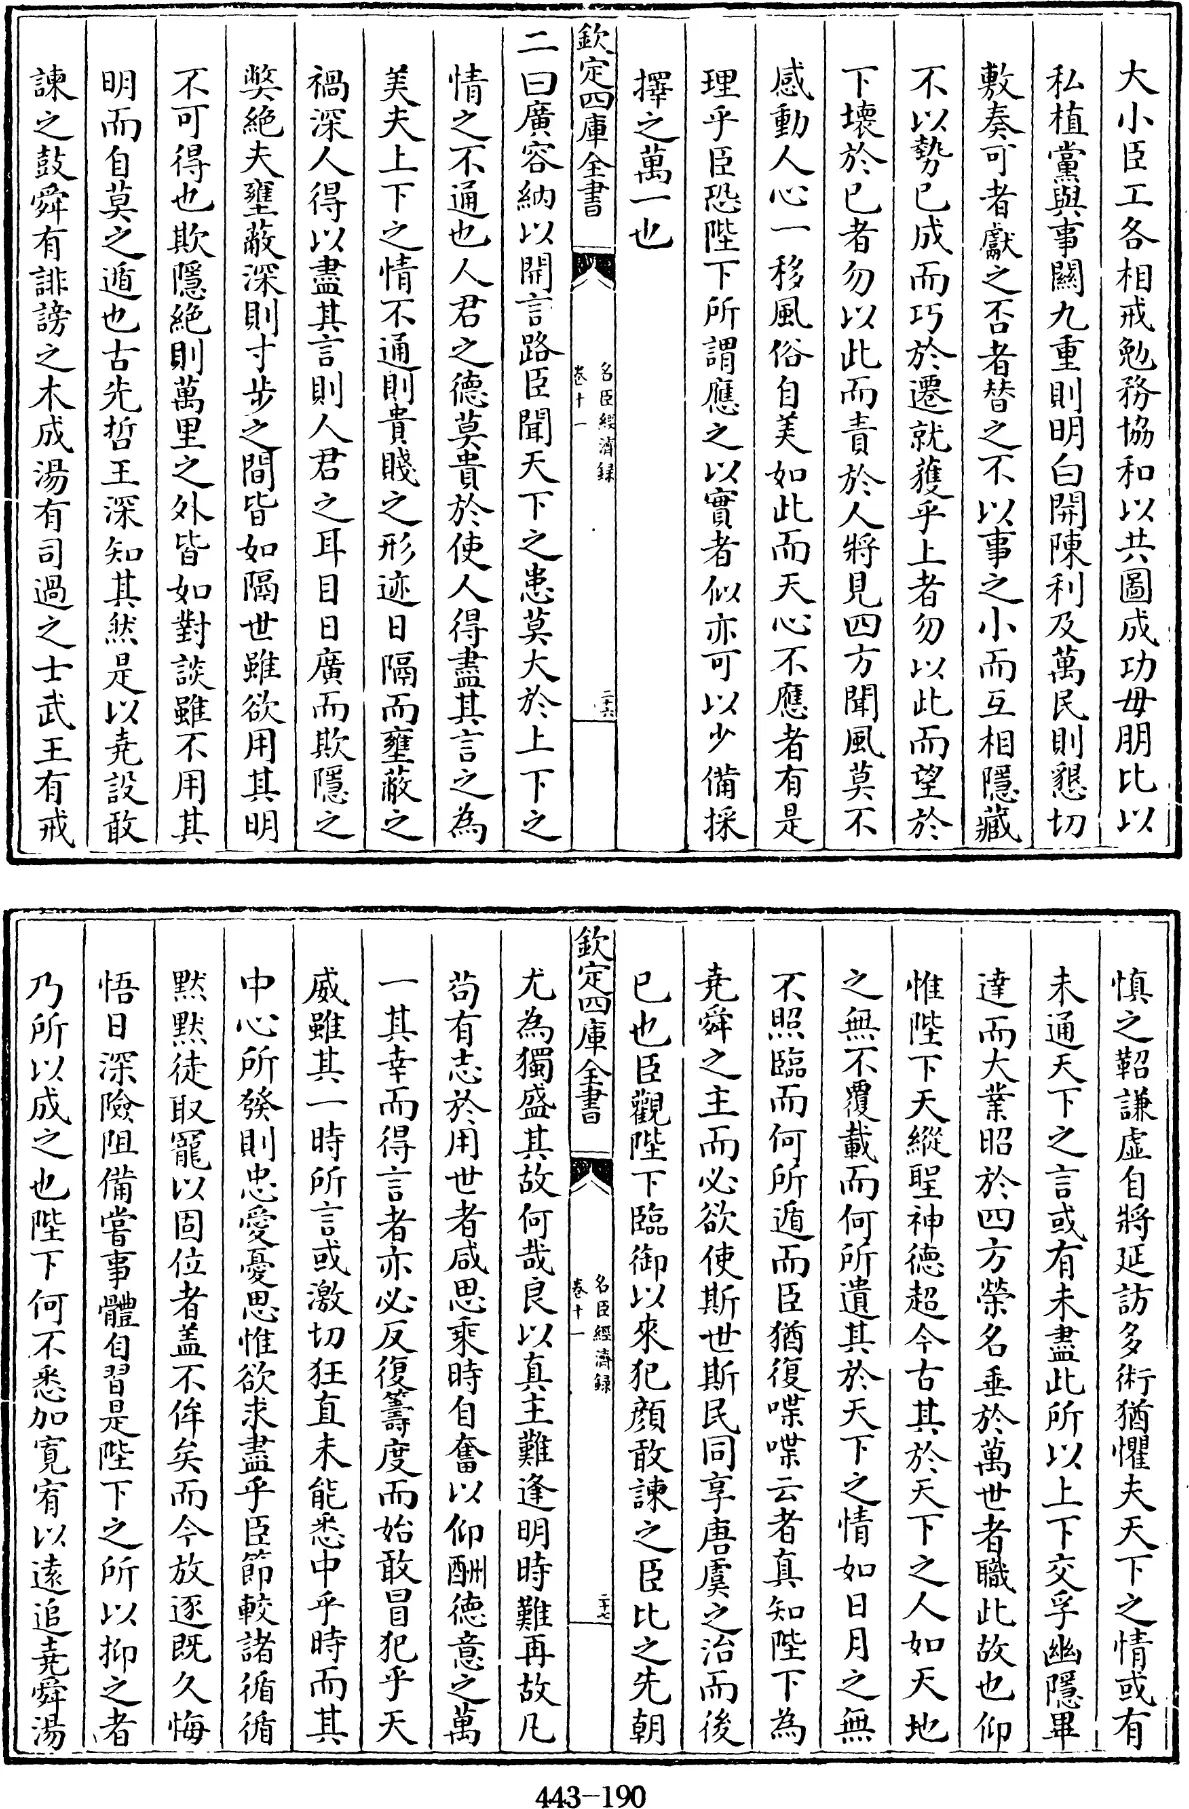 大小臣工各相戒勉務協和以共圖成功毋朋比以
私植黨與事關九重則明白開陳利及萬民則懇切
敷奏可者獻之否者替之不以事之小而互相隱藏
不以勢已成而巧於遷就獲乎上者勿以此而望於
下壞於已者勿以此而責於人將見四方聞風莫不
感動人心一移風俗自美如此而天心不應者有是
理乎臣恐陛下所謂應之以實者似亦可以少備採
擇之萬一也
欽定四庫全書
名臣經濟録
卷十一
二十六
二曰廣容納以開言路臣聞天下之患莫大於上下之
情之不通也人君之德莫貴於使人得盡其言之為
美夫上下之情不通則貴賤之形迹日隔而壅蔽之
禍深人得以盡其言則人君之耳目日廣而欺隱之
獘絶夫壅蔽深則寸步之間皆如隔世雖欲用其明
不可得也欺隱絶則萬里之外皆如對談雖不用其
明而自莫之遁也古先哲王深知其然是以堯設敢
諫之鼓舜有誹謗之木成湯有司過之士武王有戒
慎之鞀謙虛自將延訪多術猶懼夫天下之情或有
未通天下之言或有未盡此所以上下交孚幽隱畢
達而大業昭於四方榮名垂於萬世者職此故也仰
惟陛下天縱聖神德超今古其於天下之人如天地
之無不覆載而何所遺其於天下之情如日月之無
不照臨而何所遁而臣猶復喋喋云者真知陛下為
堯舜之主而必欲使斯世斯民同享唐虞之治而後
已也臣觀陛下臨御以來犯顔敢諫之臣比之先朝
欽定四庫全書
名臣經濟録
卷十一
二十七
尤為獨盛其故何哉良以真主難逢明時難再故凡
苟有志於用世者咸思乘時自奮以仰酬德意之萬
一其幸而得言者亦必反復籌度而始敢冒犯乎天
威雖其一時所言或激切狂直未能悉中乎時而其
中心所發則忠愛憂思惟欲求盡乎臣節較諸循循
黙黙徒取寵以固位者盖不侔矣而今放逐既久悔
悟日深險阻備嘗事體自習是陛下之所以抑之者
乃所以成之也陛下何不悉加寛宥以遠追堯舜湯
443-190